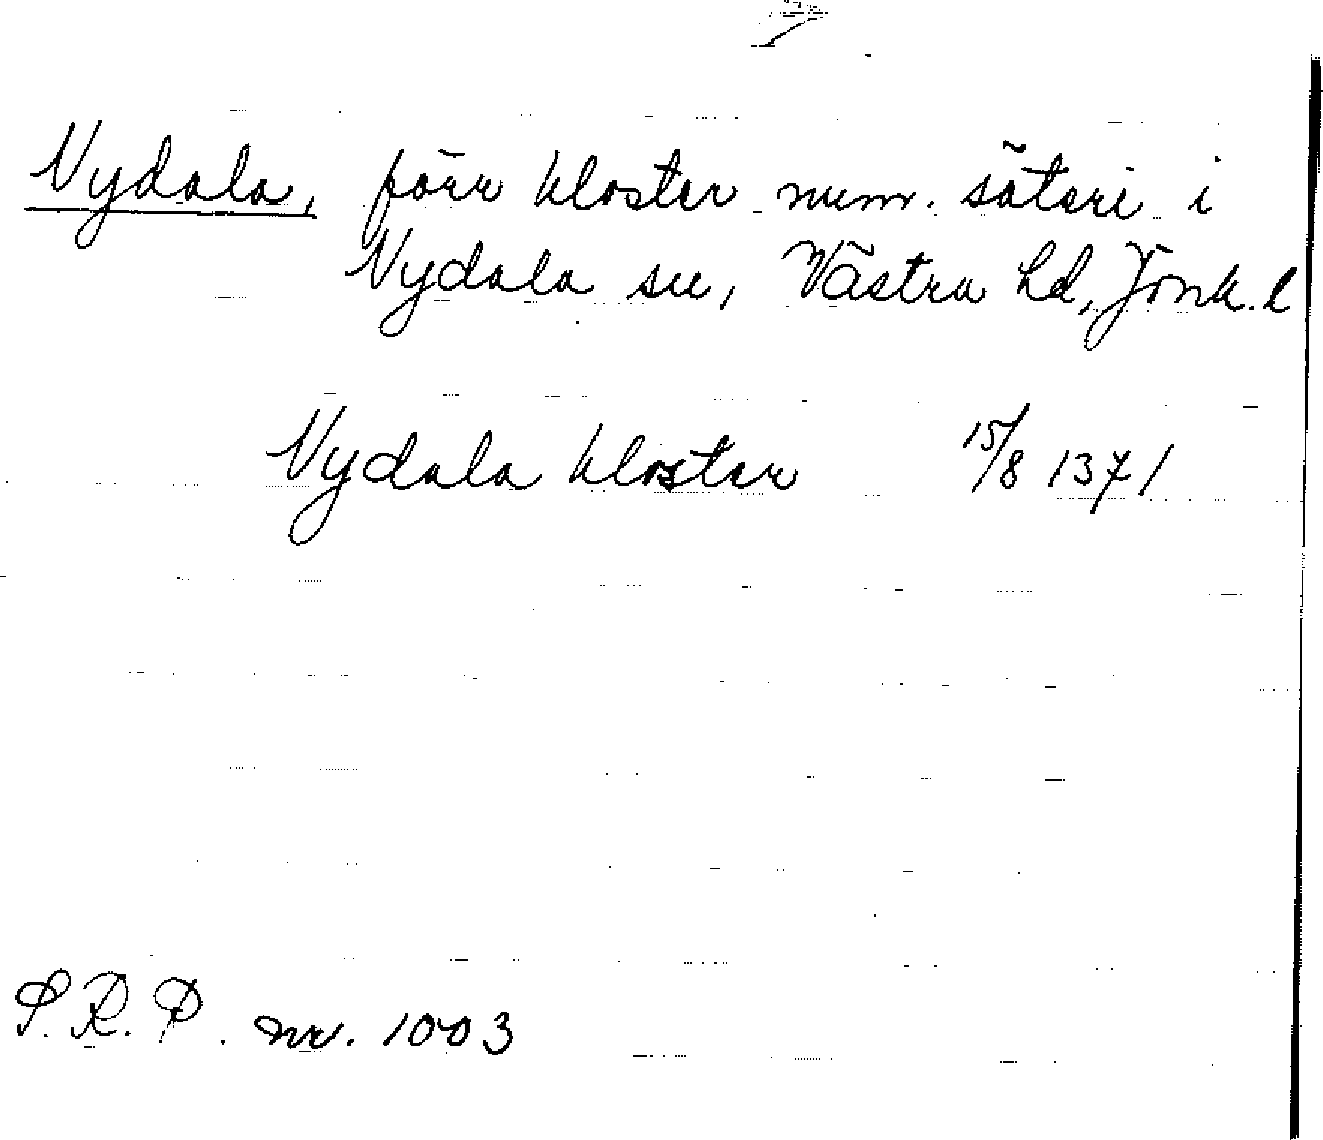 Nydala, förr kloster num. säteri i
Nydala sn, Västra hd, Jönk. l
Nydala kloster 15/8 1371
S.R.P. nr. 1003